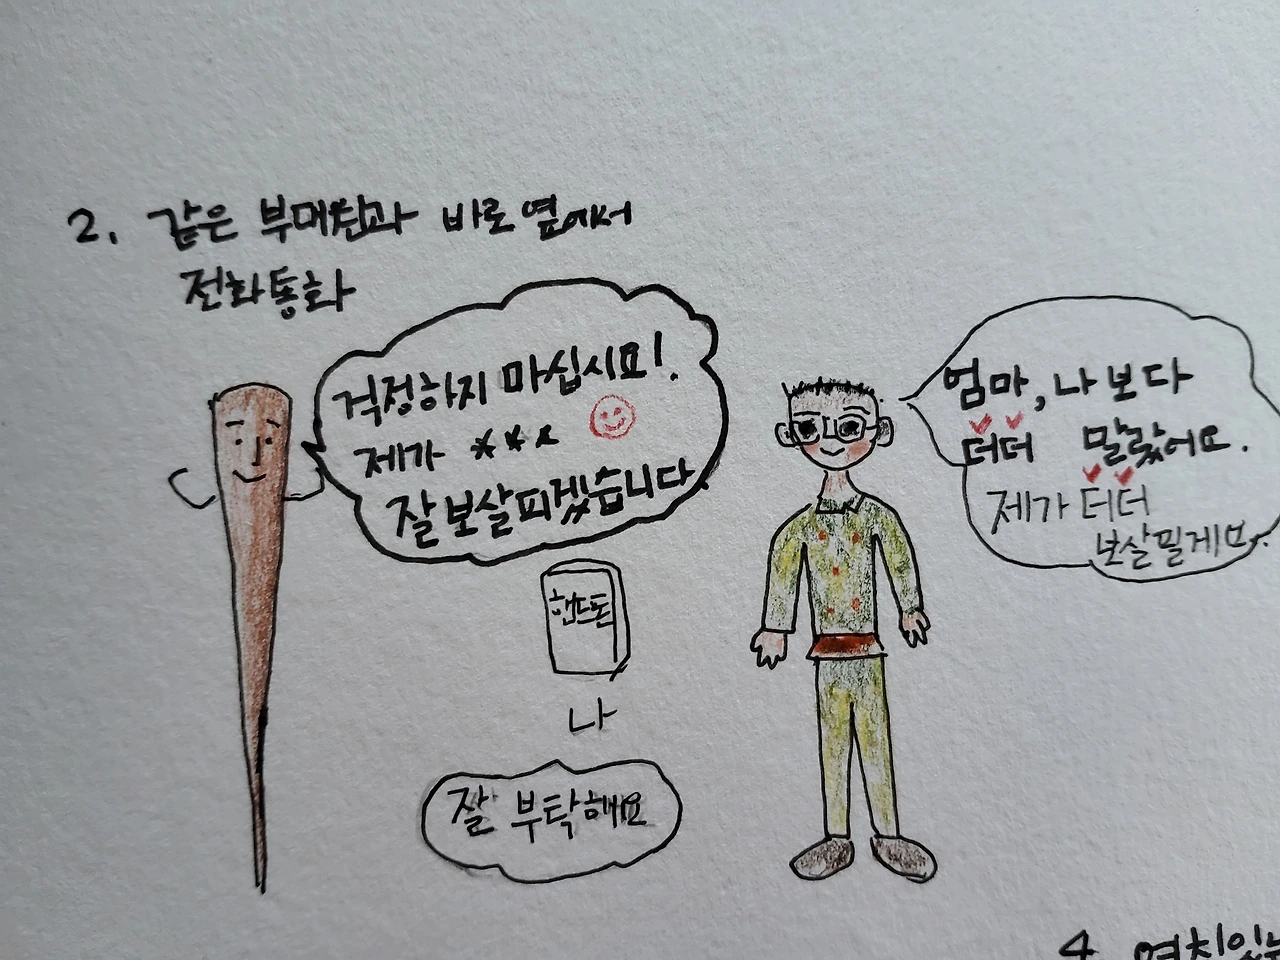 2. 같은 부대원과 바로 옆에서
전화통화
걱정하지 마십시요!.
제가 ***
잘 보살피겠습니다.
엄마, 나보다
더더 말랐어요.
제가 더더
보살필게요.
핸드폰
나
잘 부탁해요
4.